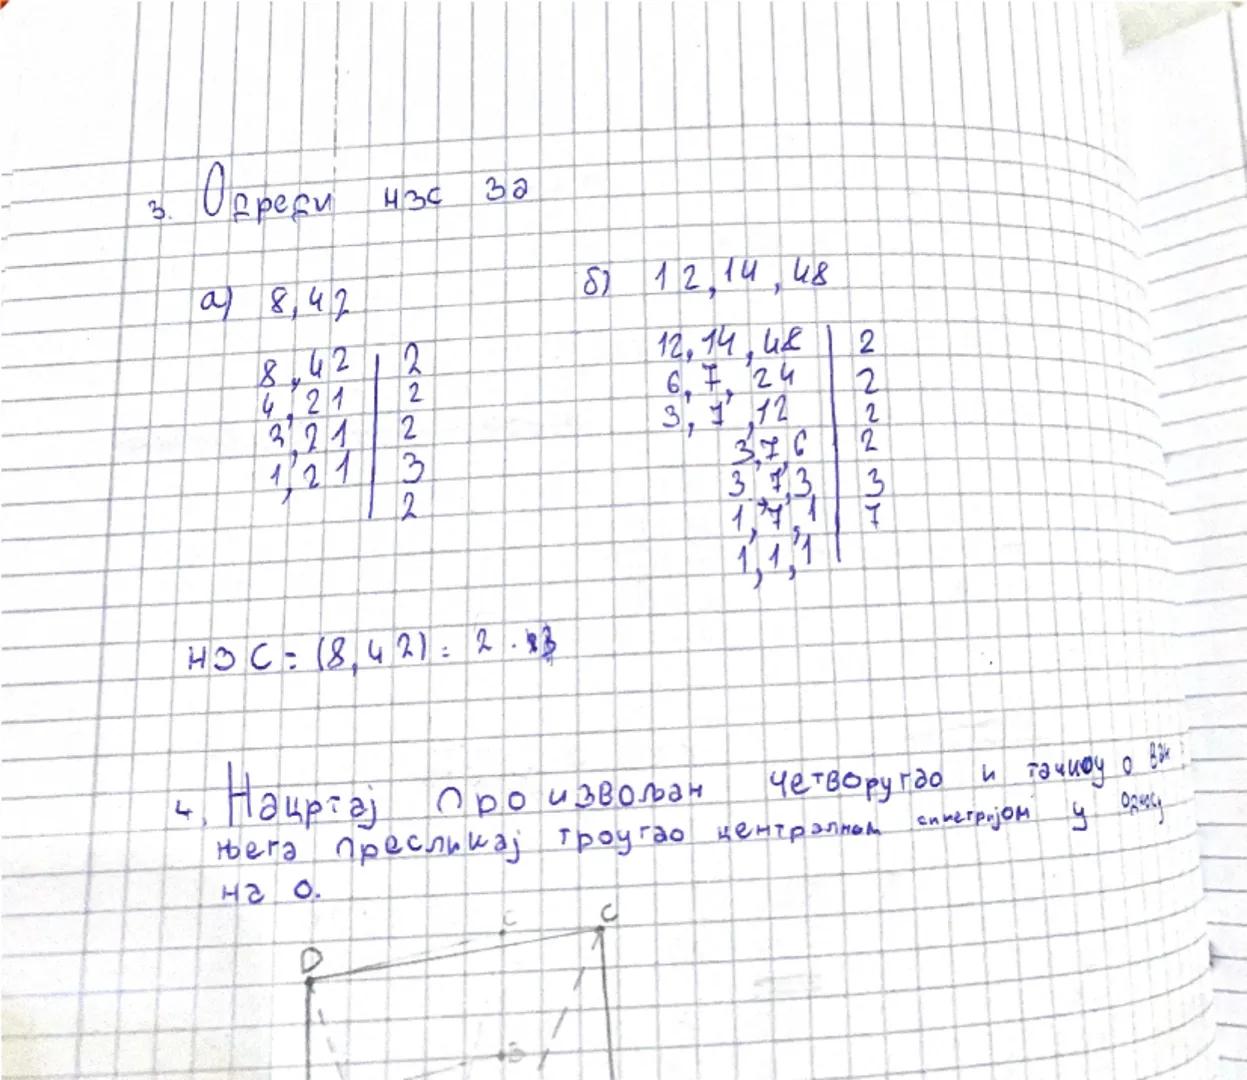 3. Одреди нзс за
а) 8,42
б) 12,14,48
8,42 | 2
4,21 | 2
3,21 | 2
1,21 | 3
2
12,14,48 | 2
6,7,24 | 2
3,7,12 | 2
3,7,6 | 2
3,7,3 | 3
1,7,1 | 7
1,1,1
НЗС=(8,42)= 2 ·
4. Нацртај произвољан четвороугао и тачку о ван
њега пресликај троугао централном симетријом у односу
на о.
C C
D
B